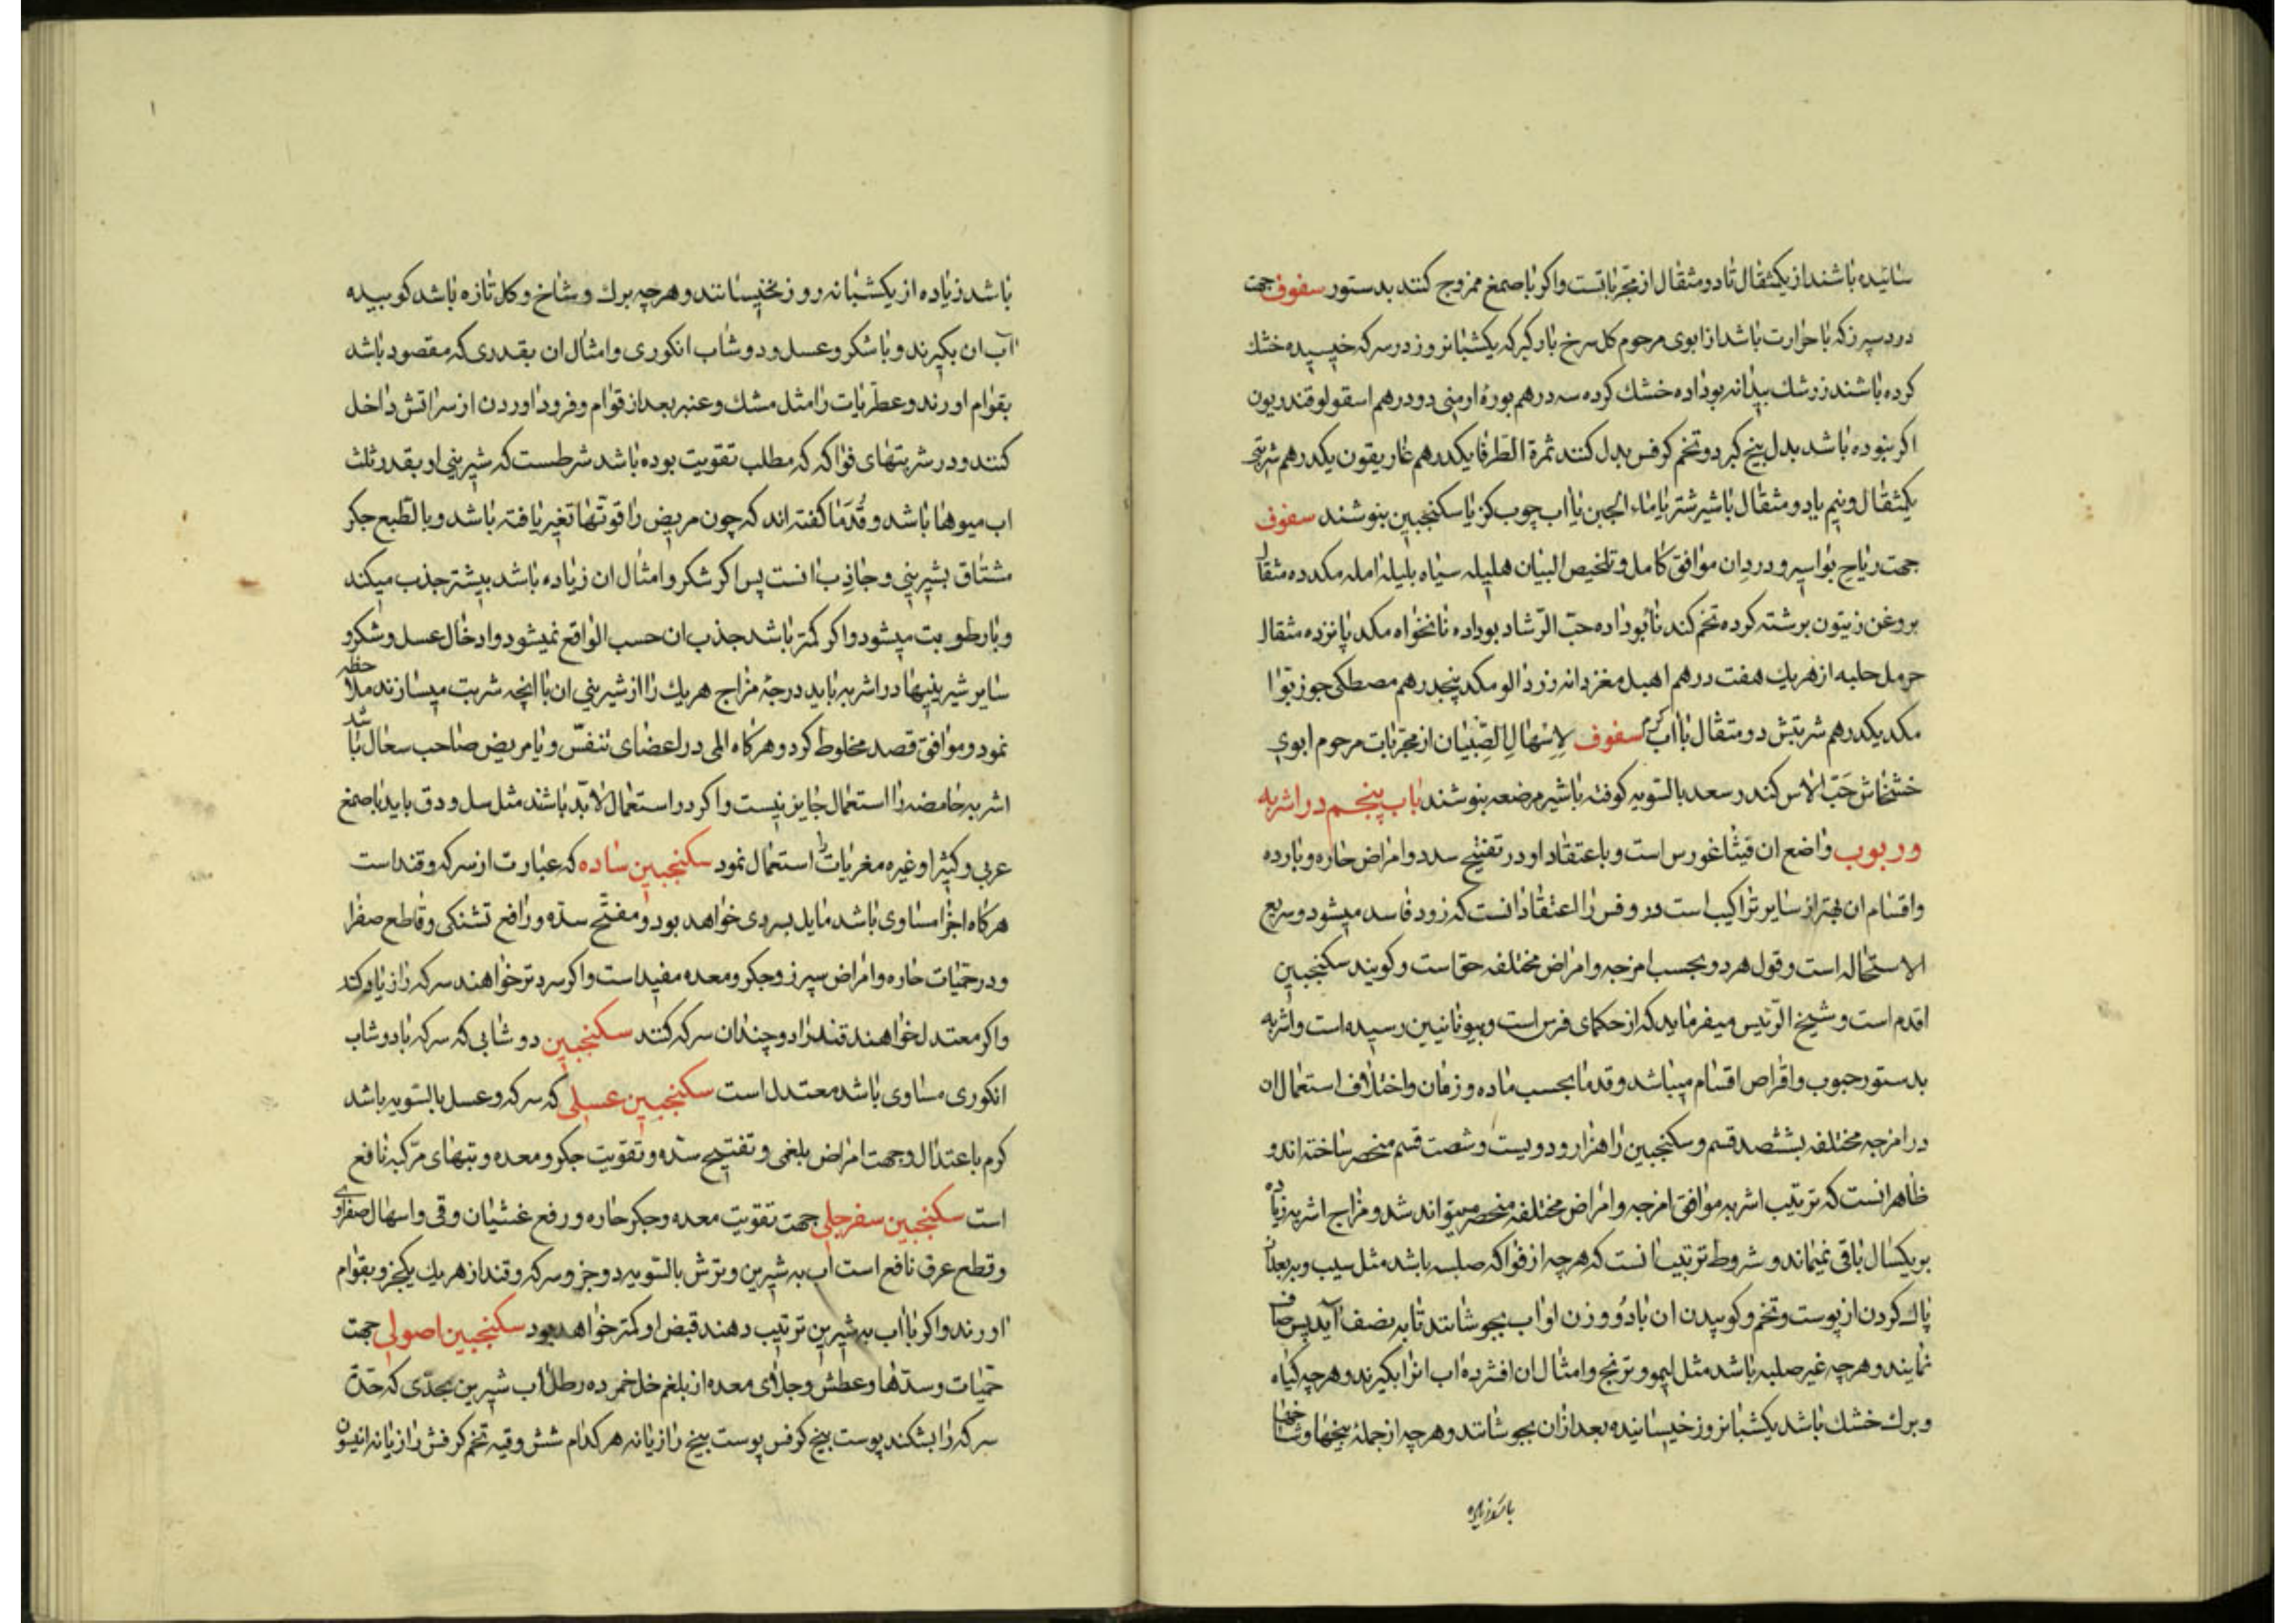 سائیده باشند از یکمثقال تا دو مثقال از مجرباتست و اکر با صمغ ممزوج کنند بدستور سفوف جهت
درد سپرز که با حرارت باشد از ابوی مرحوم کل سرخ بارکیر که یکشبانروز در سرکه خیسیده خشك
کرده باشند زرشك بیدانه بوداده خشك کرده سه درهم بورۀ ارمنی دو درهم اسقولوقندریون
اکر نبوده باشد بدل بیخ کبر و تخم کرفس بدل کنند ثمرة الطرفا یکدرهم غاریقون یکدرهم شربتی
یکمثقال و نیم یا دو مثقال با شیر شتر یا ماء الجبن یا آب چوب کز یا سکنجبین بنوشند سفوف
جهت ریاح بواسیر و درد ان موافق کامل و تلخیص البیان هلیله سیاه بلیله امله مکد ده مثقال
بروغن زیتون برشته کرده تخم کندنا بوداده حب الرشاد بوداده نانخواه مکد پانزده مثقال
حرمل حلبه از هر یك هفت درهم اهبل مغز دانه زردالو مکد پنجدرهم مصطکی جوز بوا
مکد یکدرهم شربتش دو مثقال با آب کرم سفوف لاسهال الصبیان از مجربات مرحوم ابوی
خشخاش حب الاس کندر سعد بالسویه کوفته با شیر مرضعه بنوشند باب پنجم در اشربه
و ربوب واضع ان فیثاغورس است و باعتقاد او در تفتیح سدد و امراض حاره و بارده
و اقسام ان بهتر از سایر تراکیب است در وفس را اعتقاد انست که زود فاسد میشود و سریع
الاستحاله است و قول هر دو بحسب امزجه و امراض مختلفه حق است و کویند سکنجبین
اقدم است و شیخ الرئیس میفرماید که از حکمای فرس است و بیونانیین رسیده است و اشربه
بدستور حبوب و اقراص اقسام میباشد و قدما بحسب ماده و زمان و اختلاف استعمال ان
در امزجه مختلفه بششصد قسم و سکنجبین را هزار و دویست و شصت قسم منحصر ساخته اند و
ظاهر انست که ترتیب اشربه موافق امزجه و امراض مختلفه منحصر میتواند شد و مزاج اشربه زیاده
بر یکسال باقی نمیماند و شروط ترتیب انست که هرچه از فواکه صلبه باشد مثل سیب و به بعد از
پاك کردن از پوست و تخم و کوبیدن ان با دو وزن او اب بجوشانند تا به نصف آید پس صاف
نمایند و هرچه غیر صلبه باشد مثل لیمو و ترنج و امثال ان افشرده اب انرا بکیرند و هرچه کیاه
و برك خشك باشد یکشبانروز خیسانیده بعد از ان بجوشانند و هرچه از جملۀ بیخها و شاخها
باشد زیاده
باشد زیاده از یکشبانه روز نخیسانند و هرچه برك و شاخ و کل تازه باشد کوبیده
آب ان بکیرند و با شکر و عسل و دوشاب انکوری و امثال ان بقدری که مقصود باشد
بقوام اورند و عطریات را مثل مشك و عنبر بعد از قوام و فرود اوردن از سر اتش داخل
کنند و در شربتهای فواکه که مطلب تقویت بوده باشد شرطست که شیرینی او بقدر ثلث
اب میوها باشد و قدما کفته اند که چون مریض را قوتها تغیر یافته باشد و بالطبع جکر
مشتاق بشیرینی و جاذب انست پس اکر شکر و امثال ان زیاده باشد بیشتر جذب میکند
و با رطوبت میشود و اکر کمتر باشد جذب ان حسب الواقع نمیشود و ادخال عسل و شکر و
سایر شیرینیها در اشربه باید درجۀ مزاج هر یك را از شیرینی ان با انچه شربت میسازند ملاحظه
نمود و موافق قصد مخلوط کرد و هرکاه المی در اعضای تنفس و یا مریض صاحب سعال باشد
اشربه حامضه را استعمال جایز نیست و اکر در استعمال لابد باشند مثل سل و دق باید با صمغ
عربی و کثیرا و غیره مغریات استعمال نمود سکنجبین ساده که عبارت از سرکه و قند است
هرکاه اجزا مساوی باشد مایل بسردی خواهد بود و مفتح سده و رافع تشنکی و قاطع صفرا
و در حمیات حاره و امراض سپرز و جکر و معده مفید است و اکر سردتر خواهند سرکه را زیاد کند
و اکر معتدل خواهند قند را دو چندان سرکه کنند سکنجبین دوشابی که سرکه با دوشاب
انکوری مساوی باشد معتدل است سکنجبین عسلی که سرکه و عسل بالسویه باشد
کرم باعتدال و جهت امراض بلغمی و تفتیح سده و تقویت جکر و معده و تبهای مرکبه نافع
است سکنجبین سفرجلی جهت تقویت معده و جکر حاره و رفع غشیان و قی و اسهال صفراوی
و قطع عرق نافع است اب به شیرین و ترش بالسویه دو جزو سرکه و قند از هر یك یکجزو بقوام
اورند و اکر با اب به شیرین ترتیب دهند قبض او کمتر خواهد بود سکنجبین اصولی جهت
حمیات و سدها و عطش و جلای معده از بلغم خل خمر ده رطل اب شیرین بحدی که حدت
سرکه را بشکند پوست بیخ کرفس پوست بیخ رازیانه هر کدام شش وقیه تخم کرفس رازیانه انیسون